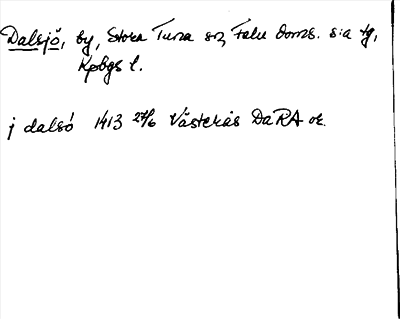 Dalsjö, by, Stora Tuna sn, Falu doms. s:a tg,
Kpbgs l.
j dalsó 1413 27/6 Västerås DaRA or.